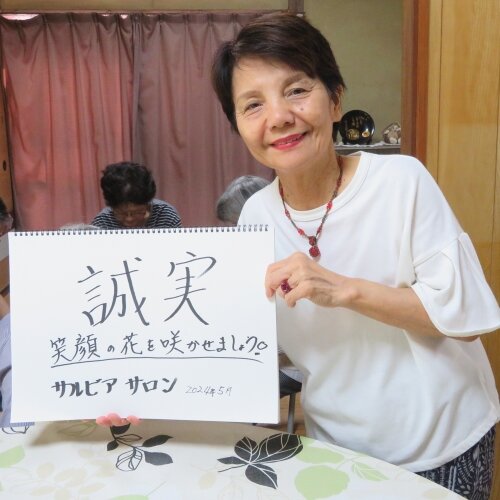 誠実
笑顔の花を咲かせましょう。
サルビア サロン 2024年5月